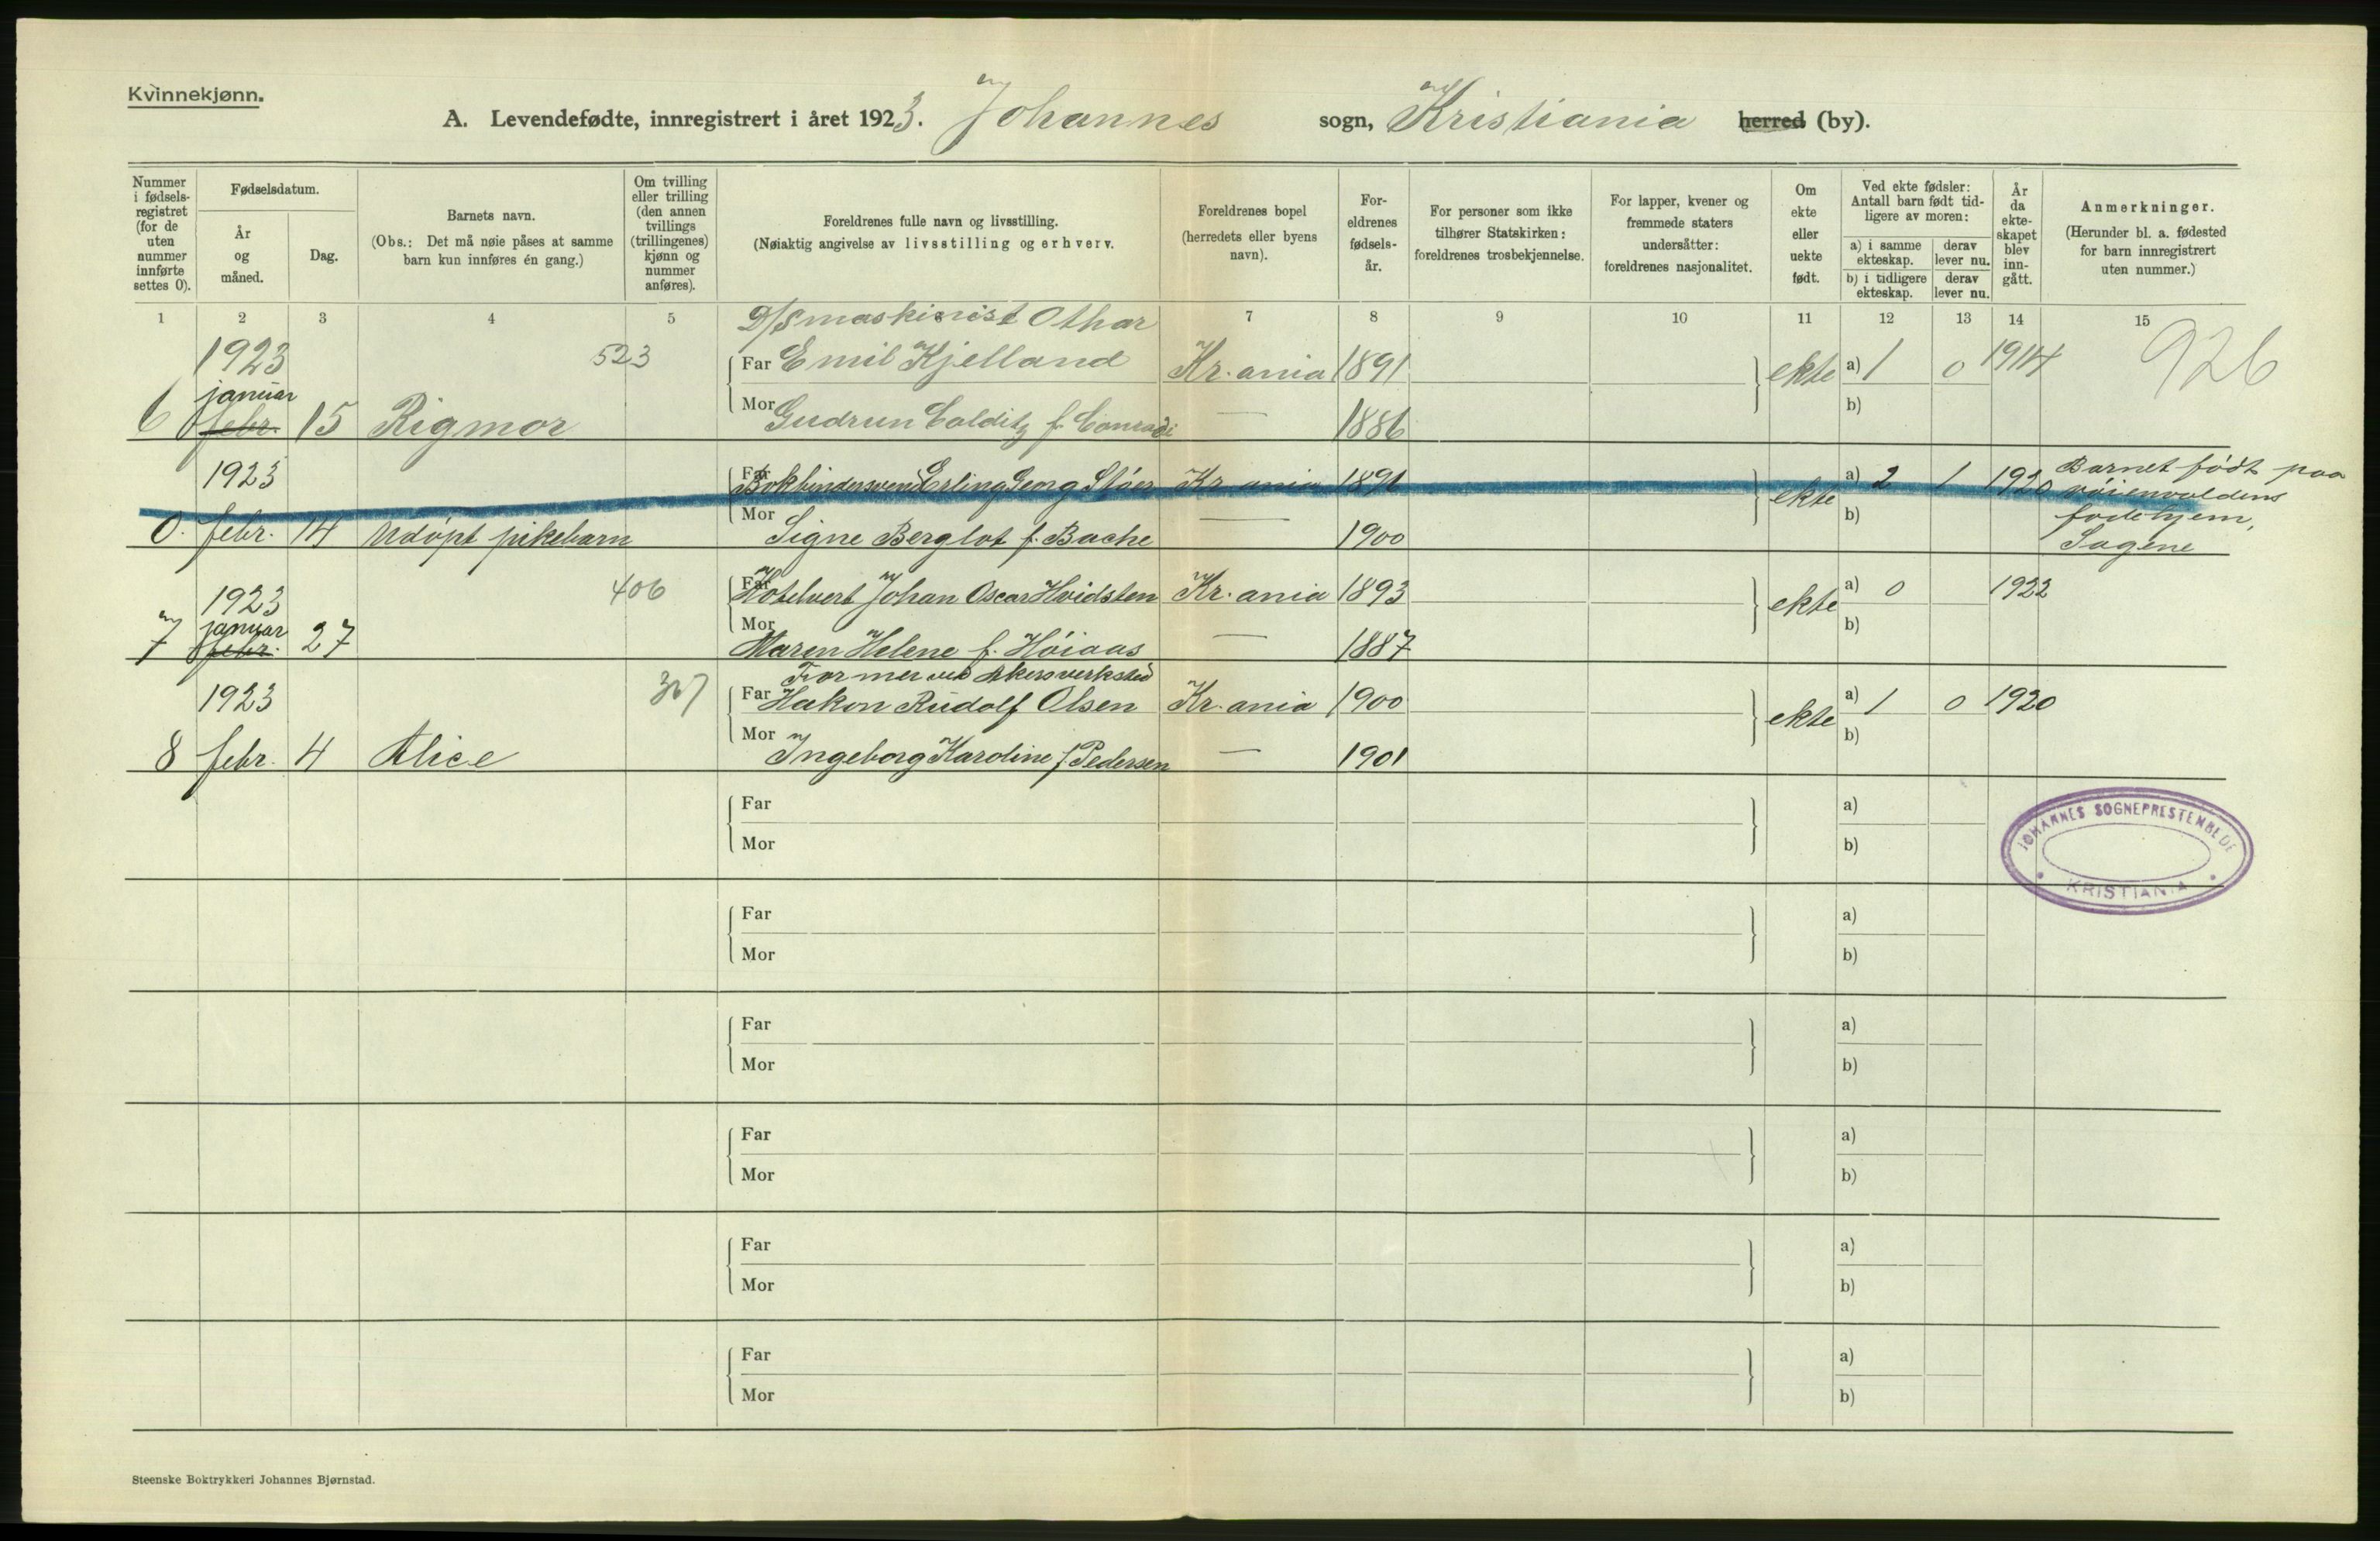 Kvinnekjønn.
A. Levendefødte, innregistrert i året 1923. Johannes sogn, Kristiania herred (by).
Nummer i fødselsregistret (for de uten nummer innførte settes 0).
Fødselsdatum.
År og måned.
Dag.
Barnets navn.
(Obs.: Det må nøie påses at samme barn kun innføres én gang.)
Om tvilling eller trilling (den annen tvillings (trillingenes) kjønn og nummer anføres).
Foreldrenes fulle navn og livsstilling.
(Nøiaktig angivelse av livsstilling og erhverv.
Foreldrenes bopel (herredets eller byens navn).
Foreldrenes fødselsår.
For personer som ikke tilhører Statskirken: foreldrenes trosbekjennelse.
For lapper, kvener og fremmede staters undersåtter: foreldrenes nasjonalitet.
Om ekte eller uekte født.
Ved ekte fødsler: Antall barn født tidligere av moren:
a) i samme ekteskap.
derav lever nu.
b) i tidligere ekteskap.
derav lever nu.
År da ekteskapet blev inngått.
Anmerkninger.
(Herunder bl. a. fødested for barn innregistrert uten nummer.)
1 2 3 4 5 7 8 9 10 11 12 13 14 15
D/S maskinist Othar
1923 523 Far Emil Kjelland Kr.ania 1891 ekte a) 1 0 1914 926
januar
6 febr. 15 Rigmor Mor Gudrun Colditz f. Conradi — 1886 b)
1923 Far Bokbindersvend Erling Georg Støer Kr ania 1891 ekte a) 2 1 1920 Barnet født paa
0. febr. 14 Udøpt pikebarn Mor Signe Berglot f. Bache — 1900 b)
fødehjem,
Sagene
1923 406 Far Hotelvert Johan Oscar Hvidsten Kr.ania 1893 ekte a) 0 1922
januar
7 febr. 27 Mor Maren Helene f. Høiaas — 1887 b)
Former ved Akers verksted
1923 Far Hakon Rudolf Olsen Kr.ania 1900 ekte a) 1 0 1920
8 febr. 4 Alice Mor Ingeborg Karoline f. Pedersen — 1901 b)
Far a)
Mor b)
JOHANNES SOGNEPRESTEMBEDE
KRISTIANIA
Far a)
Mor b)
Far a)
Mor b)
Far a)
Mor b)
Far a)
Mor b)
Far a)
Mor b)
Steenske Boktrykkeri Johannes Bjørnstad.